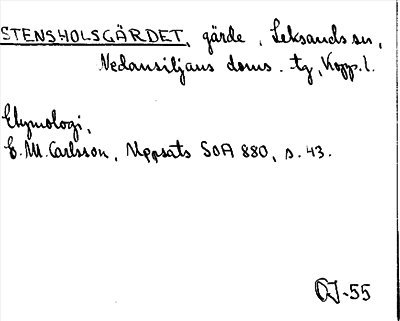 STENSHOLSGÄRDET, gärde, Leksands sn,
Nedansiljans doms. tg, Kopp. l.
Etymologi,
E. M. Carlsson, Uppsats SOA 880, s. 43.
OJ-55